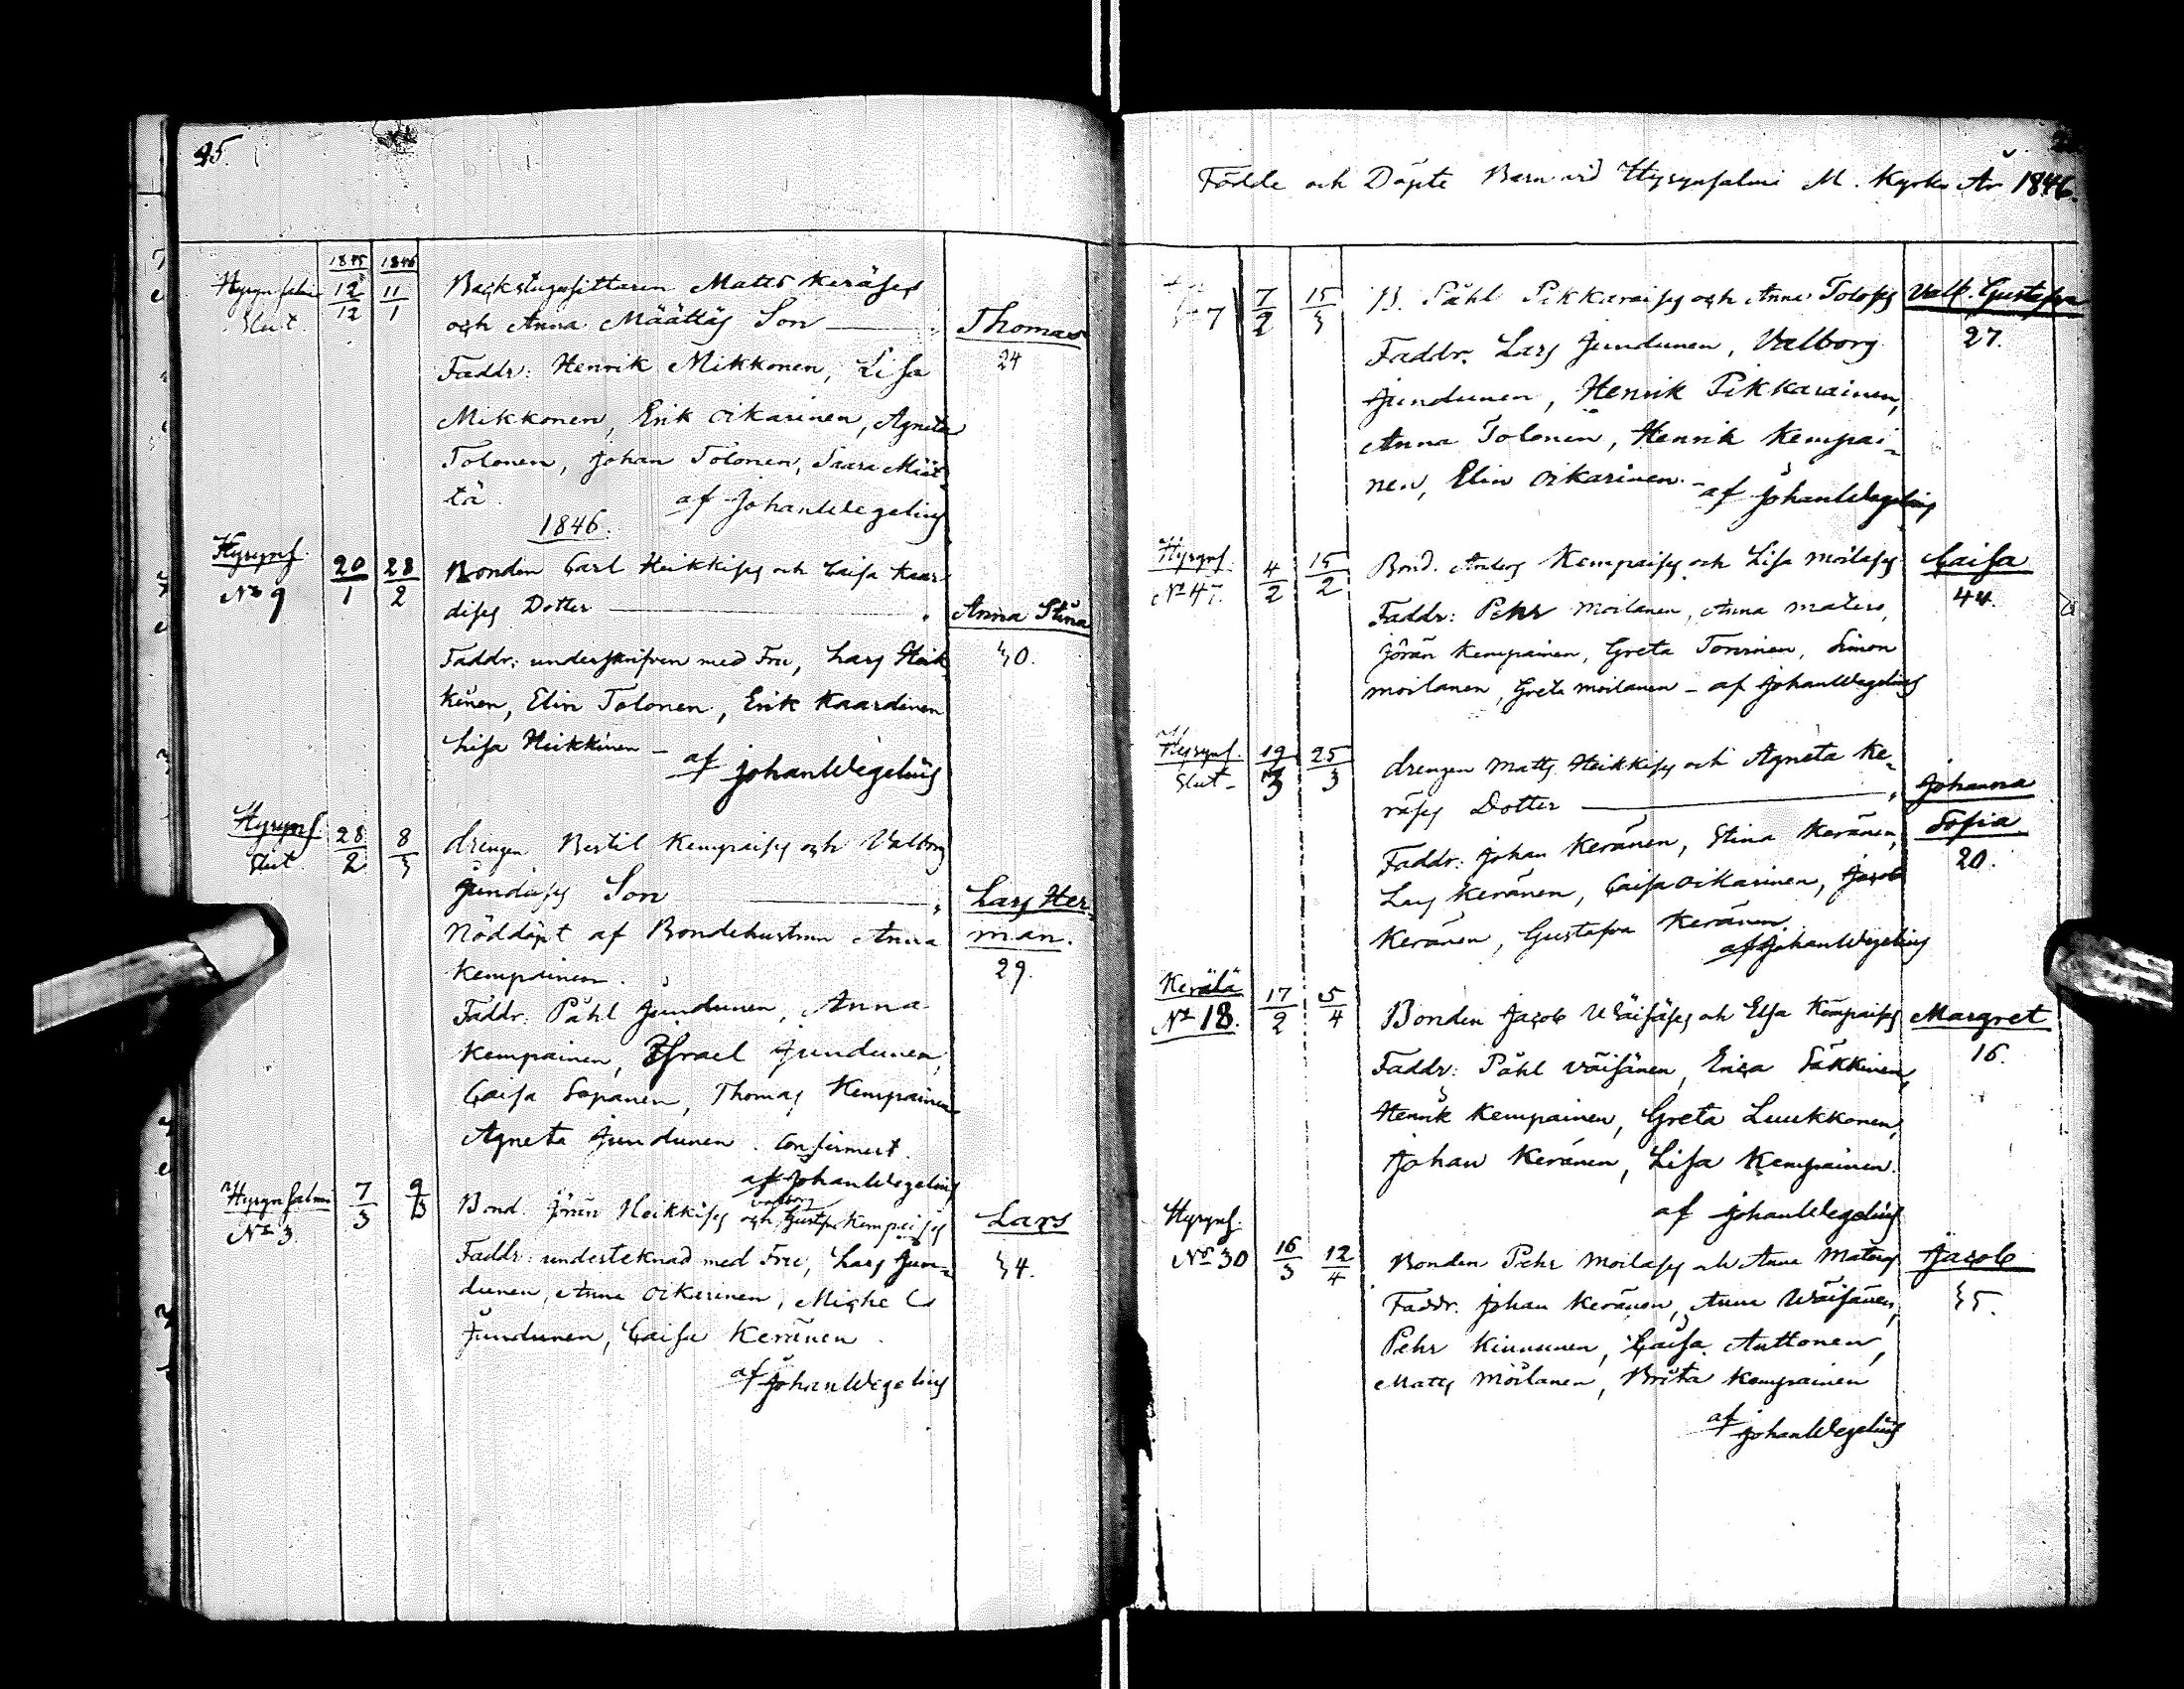 25.
1845 1846
Hyrynsalmi 12/12 11/1 Backstugusittaren Matts Keräses
Slut. och Anna Määttäs Son — Thomas
Faddr: Henrik Mikkonen, Lisa 24
Mikkonen, Erik Oikarinen, Agneta
Tolonen, Johan Tolonen, Saara Määt-
tä. af Johan Wegelius
1846.
Hyryns. 20/1 28/2 Bonden Carl Heikkises och Caisa Kaar-
No 9 dises Dotter — Anna Stina
Faddr: underskrifven med Fru, Lars Heik- 30.
kinen, Elin Tolonen, Erik Kaardinen
Lisa Heikkinen — af Johan Wegelius
Hyryns. 28/2 8/3 drengen Bertil Kempaises och Valborg
Slut. Junduses Son — Lars Her-
Nöddöpt af Bondehustrun Anna man.
Kempainen. 29.
Faddr: Påhl Jundunen, Anna
Kempainen, Israel Jundunen,
Caisa Sopanen, Thomas Kempainen
Agneta Jundunen. Confirmert.
af Johan Wegelius
Hyrynsalmi 7/3 9/3 Bond. Jöran Heikkises och Valborg Kempaises Lars
No 3. Faddr: underteknad med Fru, Lars Jun- 34.
dunen, Anna Oikarinen, Michel
Jundunen, Caisa Keränen.
af Johan Wegelius
Födde och Döpte Barn vid Hyrynsalmi M. Kyrka År 1846.
7 7/2 15/3 B. Påhl Pikkaraises och Anna Toloses Valb. Gustafva
Faddr. Lars Jundunen, Valborg 27.
Jundunen, Henrik Pikkarainen,
Anna Tolonen, Henrik Kempai-
nen, Elin Oikarinen. — af Johan Wegelius
Hyryns. 4/2 15/2 Bond. Anders Kempaises och Lisa Moilases Caisa
No 47. Faddr: Pehr Moilanen, Anna Matero, 44.
Jöran Kempainen, Greta Torninen, Simon
Moilanen, Greta Moilanen — af Johan Wegelius
Hyryns. 19/3 25/3 drengen Matts Heikkises och Agneta Ke-
Slut — räses Dotter — Johanna
Faddr: Johan Keränen, Stina Keränen, Sofia
Lars Keränen, Caisa Oikarinen, Jacob 20.
Keränen, Gustafva Keränen.
af Johan Wegelius
Kerälä 17/2 5/4 Bonden Jacob Wäisäses och Elsa Kempaises Margret
No 18. Faddr: Påhl Väisänen, Erica Säkkinen, 16.
Henrik Kempainen, Greta Luukkonen,
Johan Keränen, Lisa Kempainen.
af Johan Wegelius
Hyryns.
No 30 16/3 12/4 Bonden Pehr Moilases och Anna Materos Jacob
Faddr: Johan Keränen, Anna Wäisänen, 35.
Pehr Kinnunen, Caisa Anttonen,
Matts Moilanen, Brita Kempainen
af Johan Wegelius